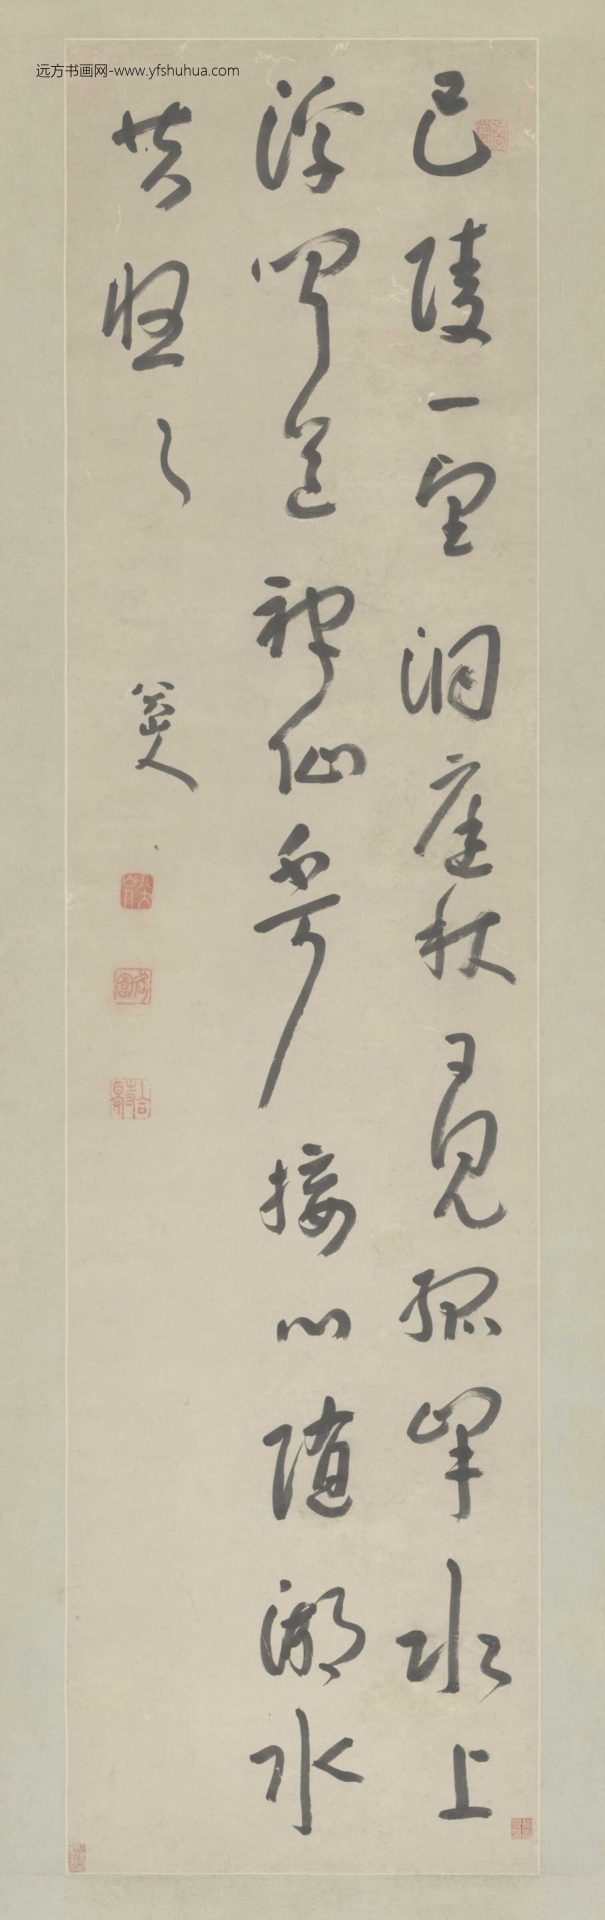 远方书画网-www.yfshuhua.com
巴陵一望洞庭秋日見孤峯水上
浮聞道神仙不可接心隨湖水
共悠々
八大山人